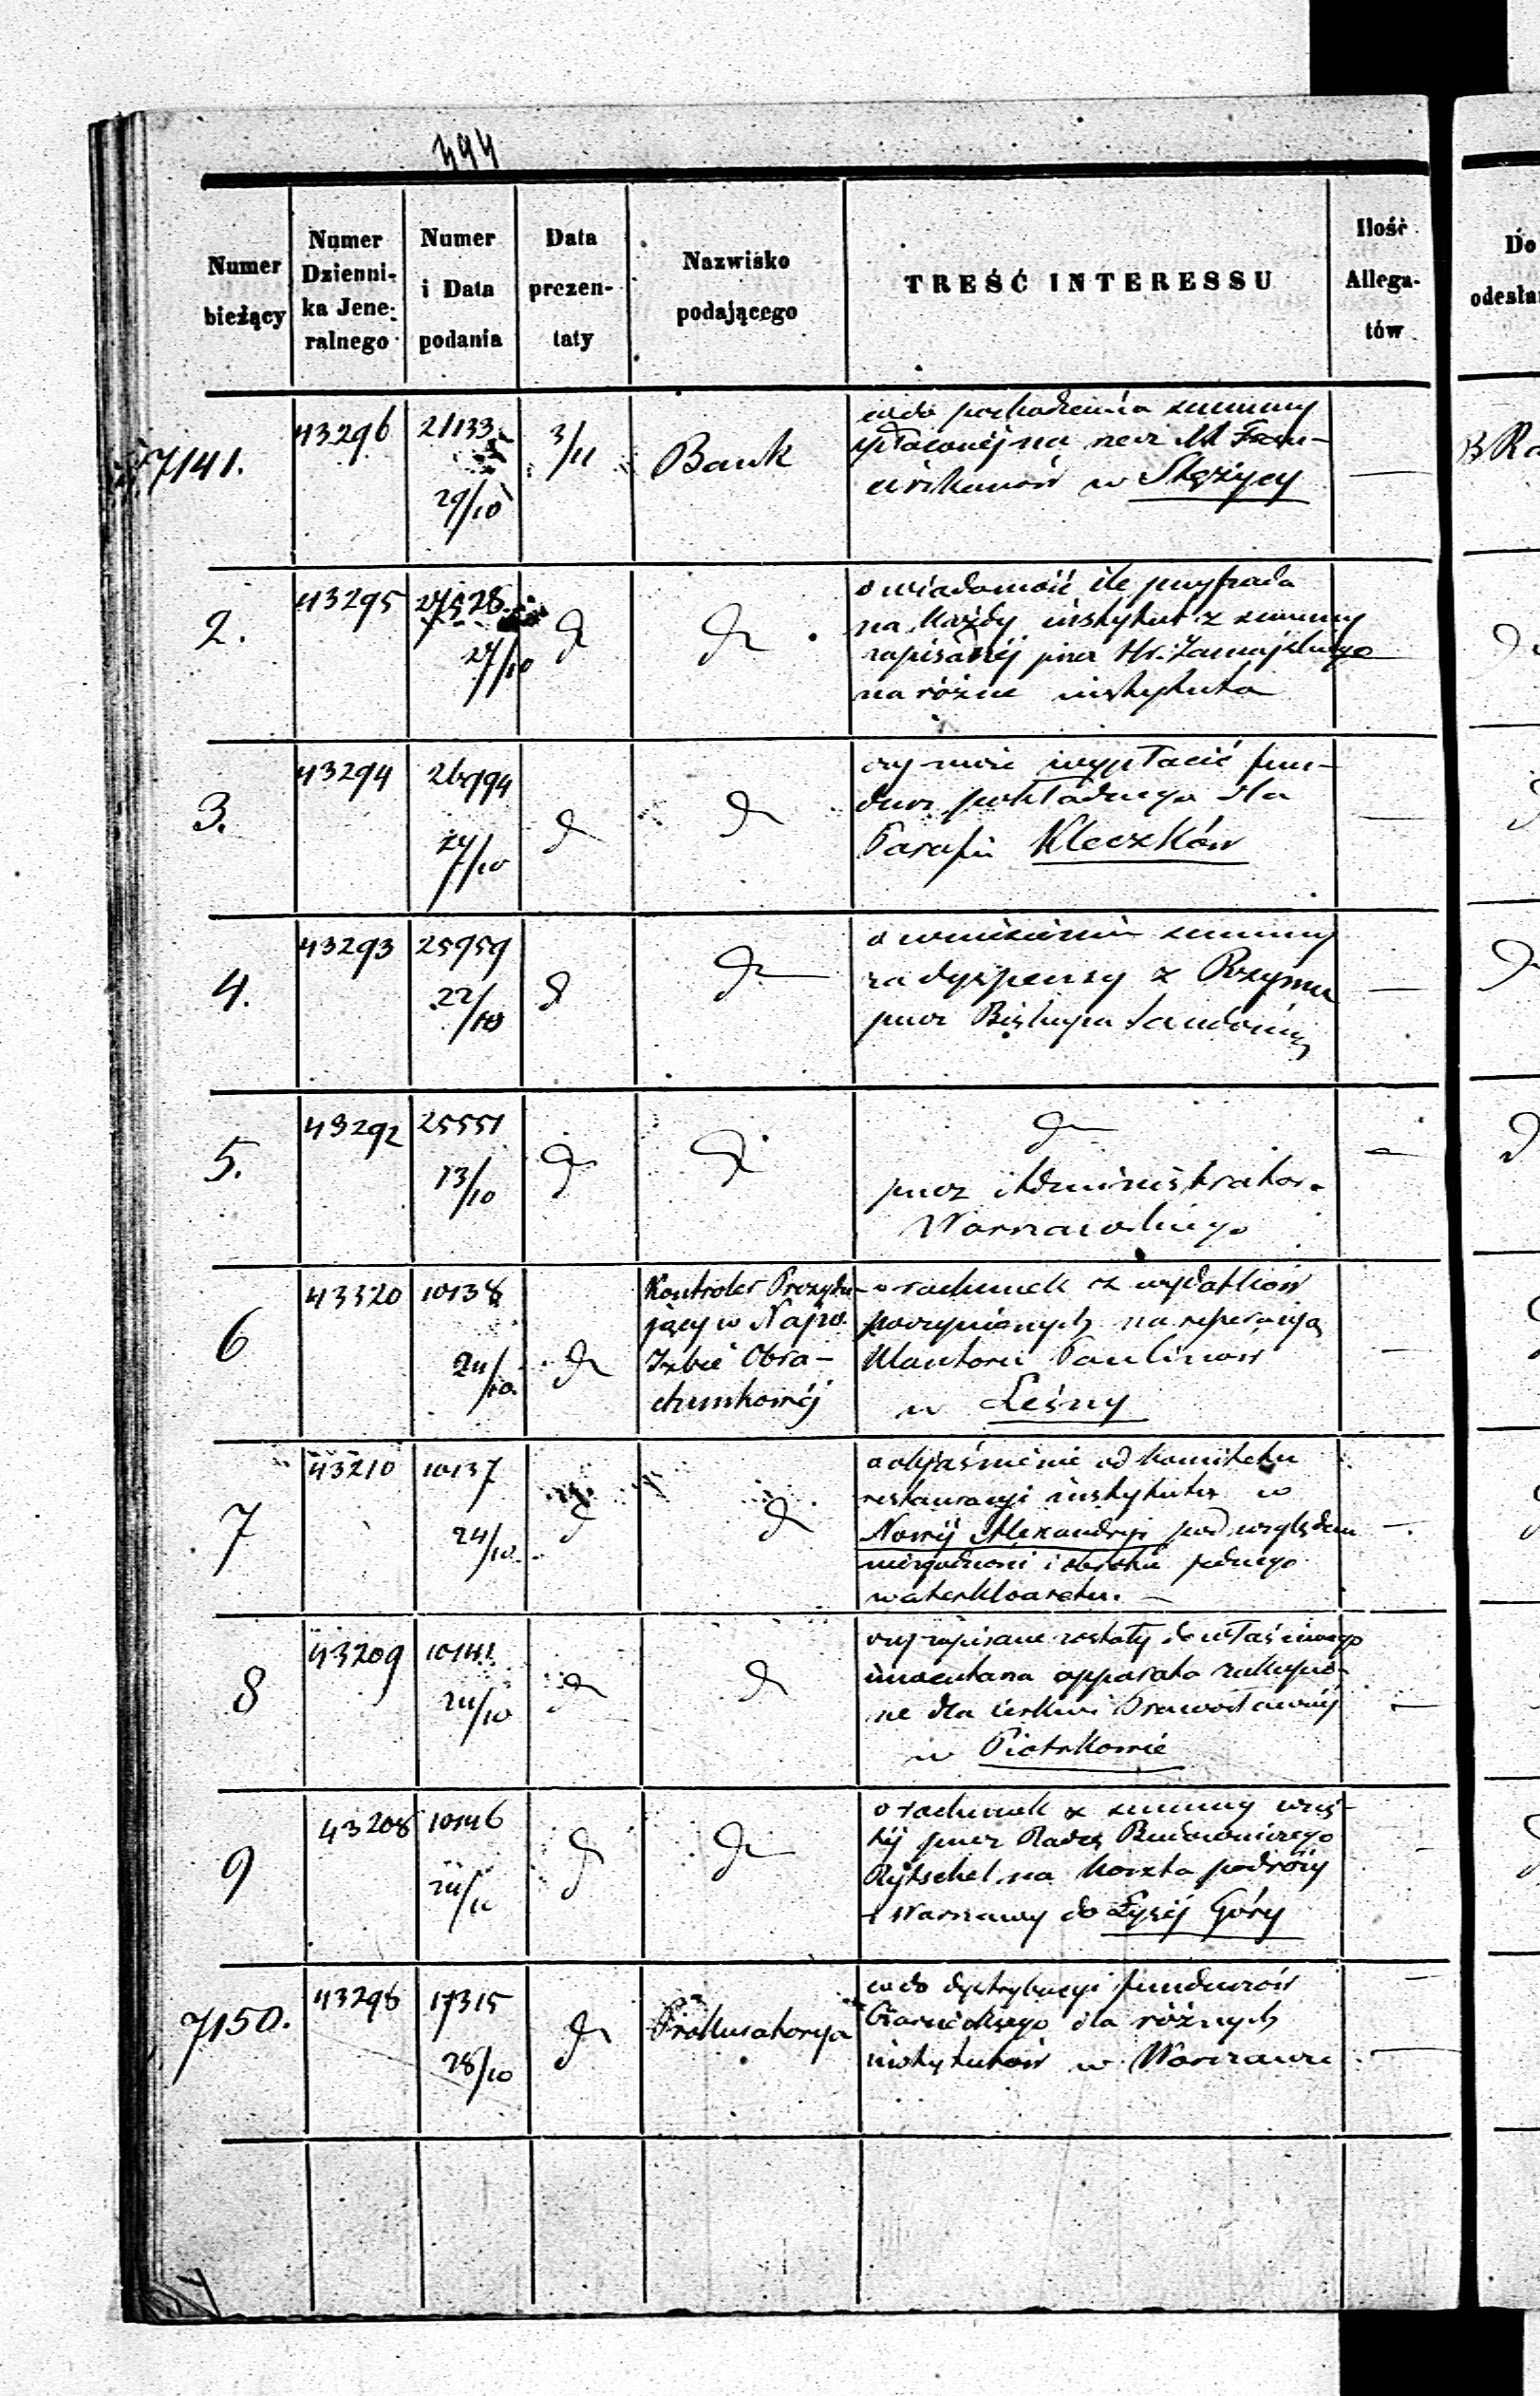 394
Numer bieżący | Numer Dzienni-ka Jene-ralnego | Numer i Data podania | Data prezen-taty | Nazwisko podającego | TREŚĆ INTERESSU | Ilość Allega-tów | Do
odesła
7141. | 43296 | 21133 29/10 | 3/11 | Bank | co do pochodzenia summy
wpłaconéj na rzecz
w Stężycy
2. | 43295 | 27/10 | d | d | o wiadomość ile przypada
na każdy instytut z summy
zapisanéj przez Hr. Zamojskiego
na różne instytuta
3. | 43294 | 26994 27/10 | d | d | czy może wypłacić fun-
dusz pokładnego dla
Parafii Kleczków
4. | 43293 | 25959 22/10 | d | d | o wniesieniu summy
za dyspensy z Rzymu
przez Biskupa Sandom
5. | 43292 | 25551 13/10 | d | d | d
przez Administrator.
Warszawskiego
6 | 43320 | 10138 24/10 | d | Kontroler Prezydu-
jący w Najw.
Izbie Obra-
chunkowéj | o rachunek z wydatków
poczynionych na reperacyą
klasztoru Paulinów
w Leśny
7 | 43210 | 10137 24/10 | d | d | o objaśnienie od komitetu
restauracyi instytutu w
Nowéj Alexandryi pod względem
niezgodności i jednego
waterklozetu.
8 | 43209 | 10141 24/10 | d | d | czy zapisane zostały do właściwego
inwentarza apparata zakupio-
ne dla cerkwi Prawosławnéj
w Piotrkowie
9 | 43208 | 10146 24/10 | d | d | o rachunek z summy wzię-
téj przez Radcę Budowniczego
na koszta podróży
z Warszawy do Łyséj Góry
7150. | 43298 | 17315 28/10 | d | Prokuratorya | co do dystrybucyi funduszów
dla różnych
instytutów w Warszawie